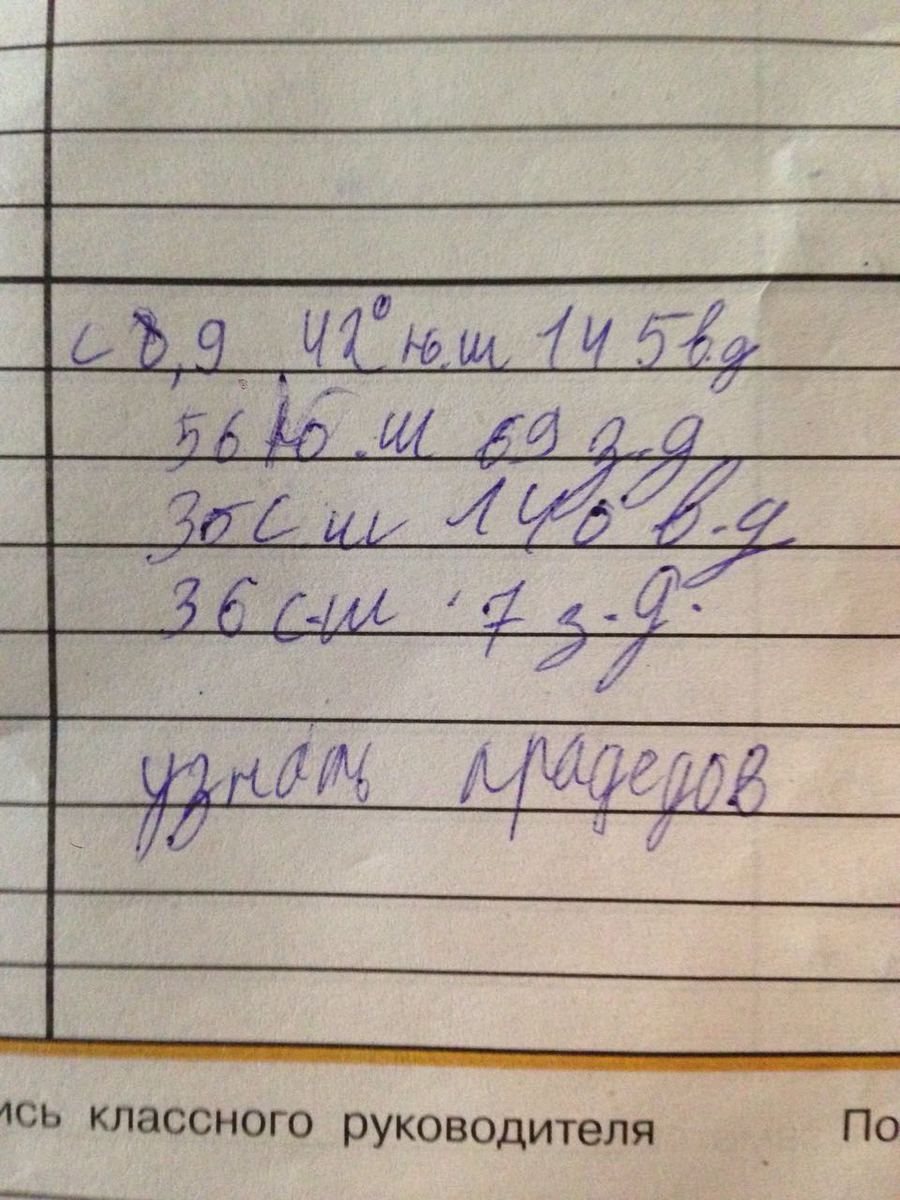 с 8,9 42° ю.ш 145 в.д
56 ю.ш 69 з.д.
36 с ш 140 в.д
36 с.ш 7 з.д.
узнать прадедов
ись классного руководителя По